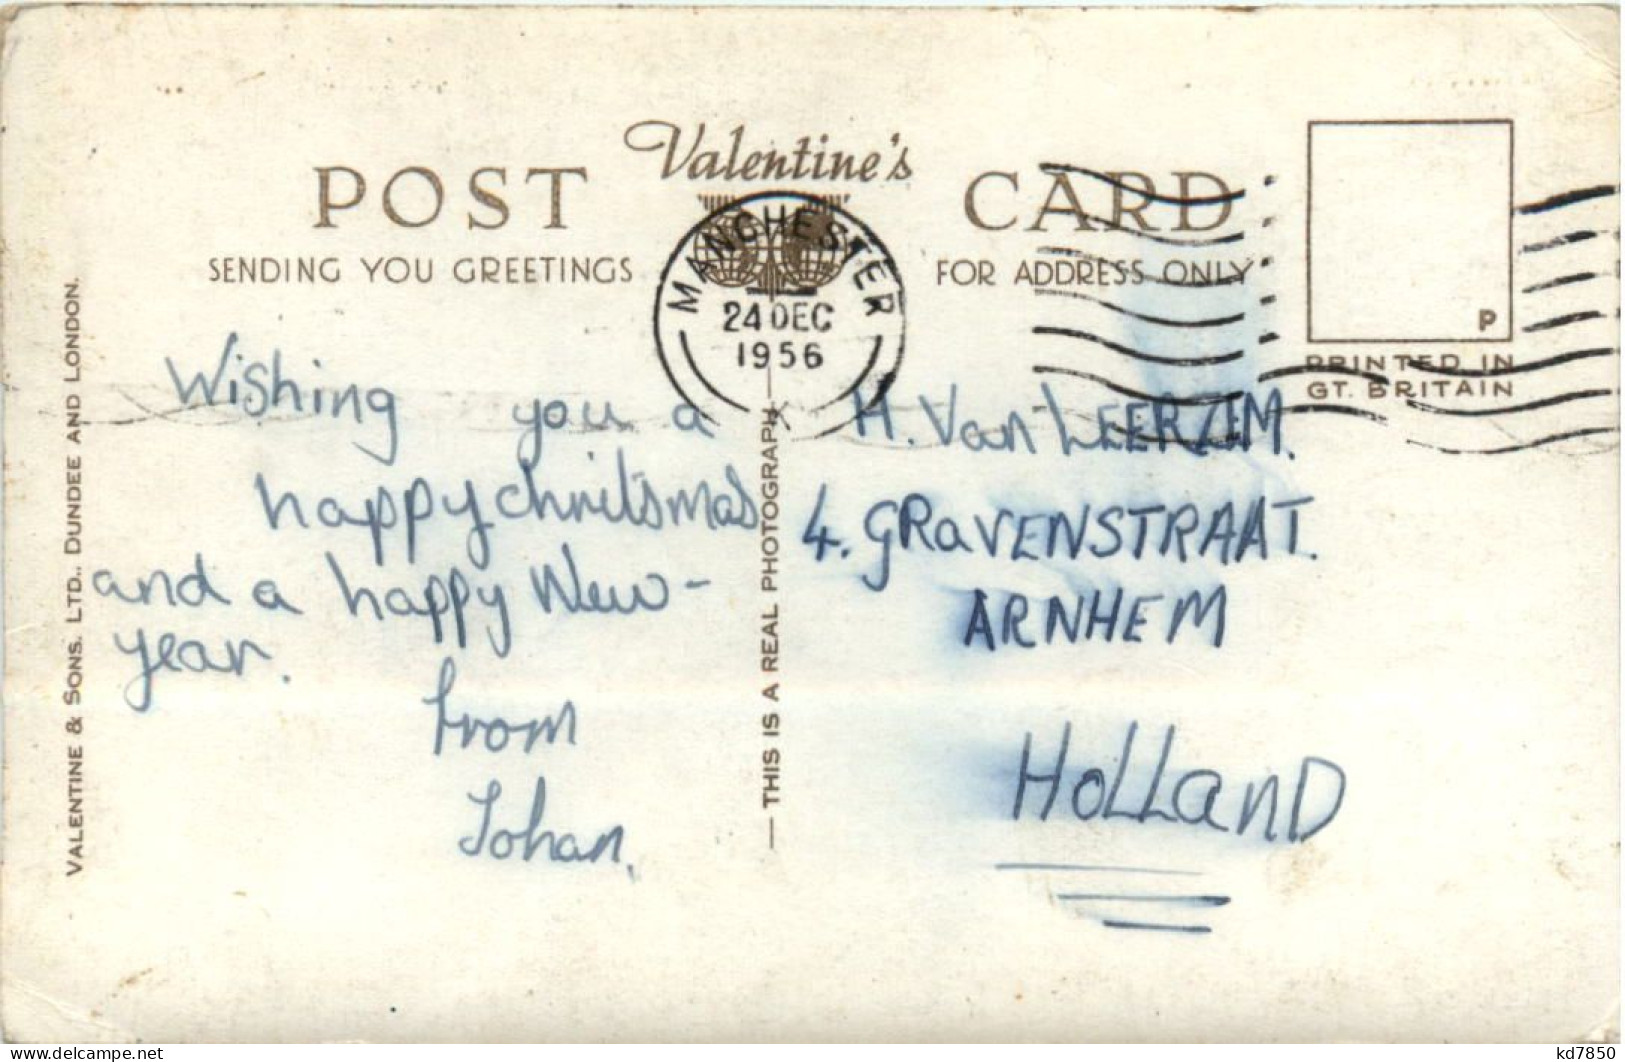 Valentine's
POST CARD
SENDING YOU GREETINGS
FOR ADDRESS ONLY
MANCHESTER
24 DEC
1956
P
PRINTED IN
GT. BRITAIN
VALENTINE & SONS. LTD., DUNDEE AND LONDON.
Wishing you a
happy chritsmas
and a happy New-
year.
from
Johan.
— THIS IS A REAL PHOTOGRAPH —
H. Van
4. GRavENSTRAAT.
ARNHEM
HoLLanD
delcampe.net
kd7850